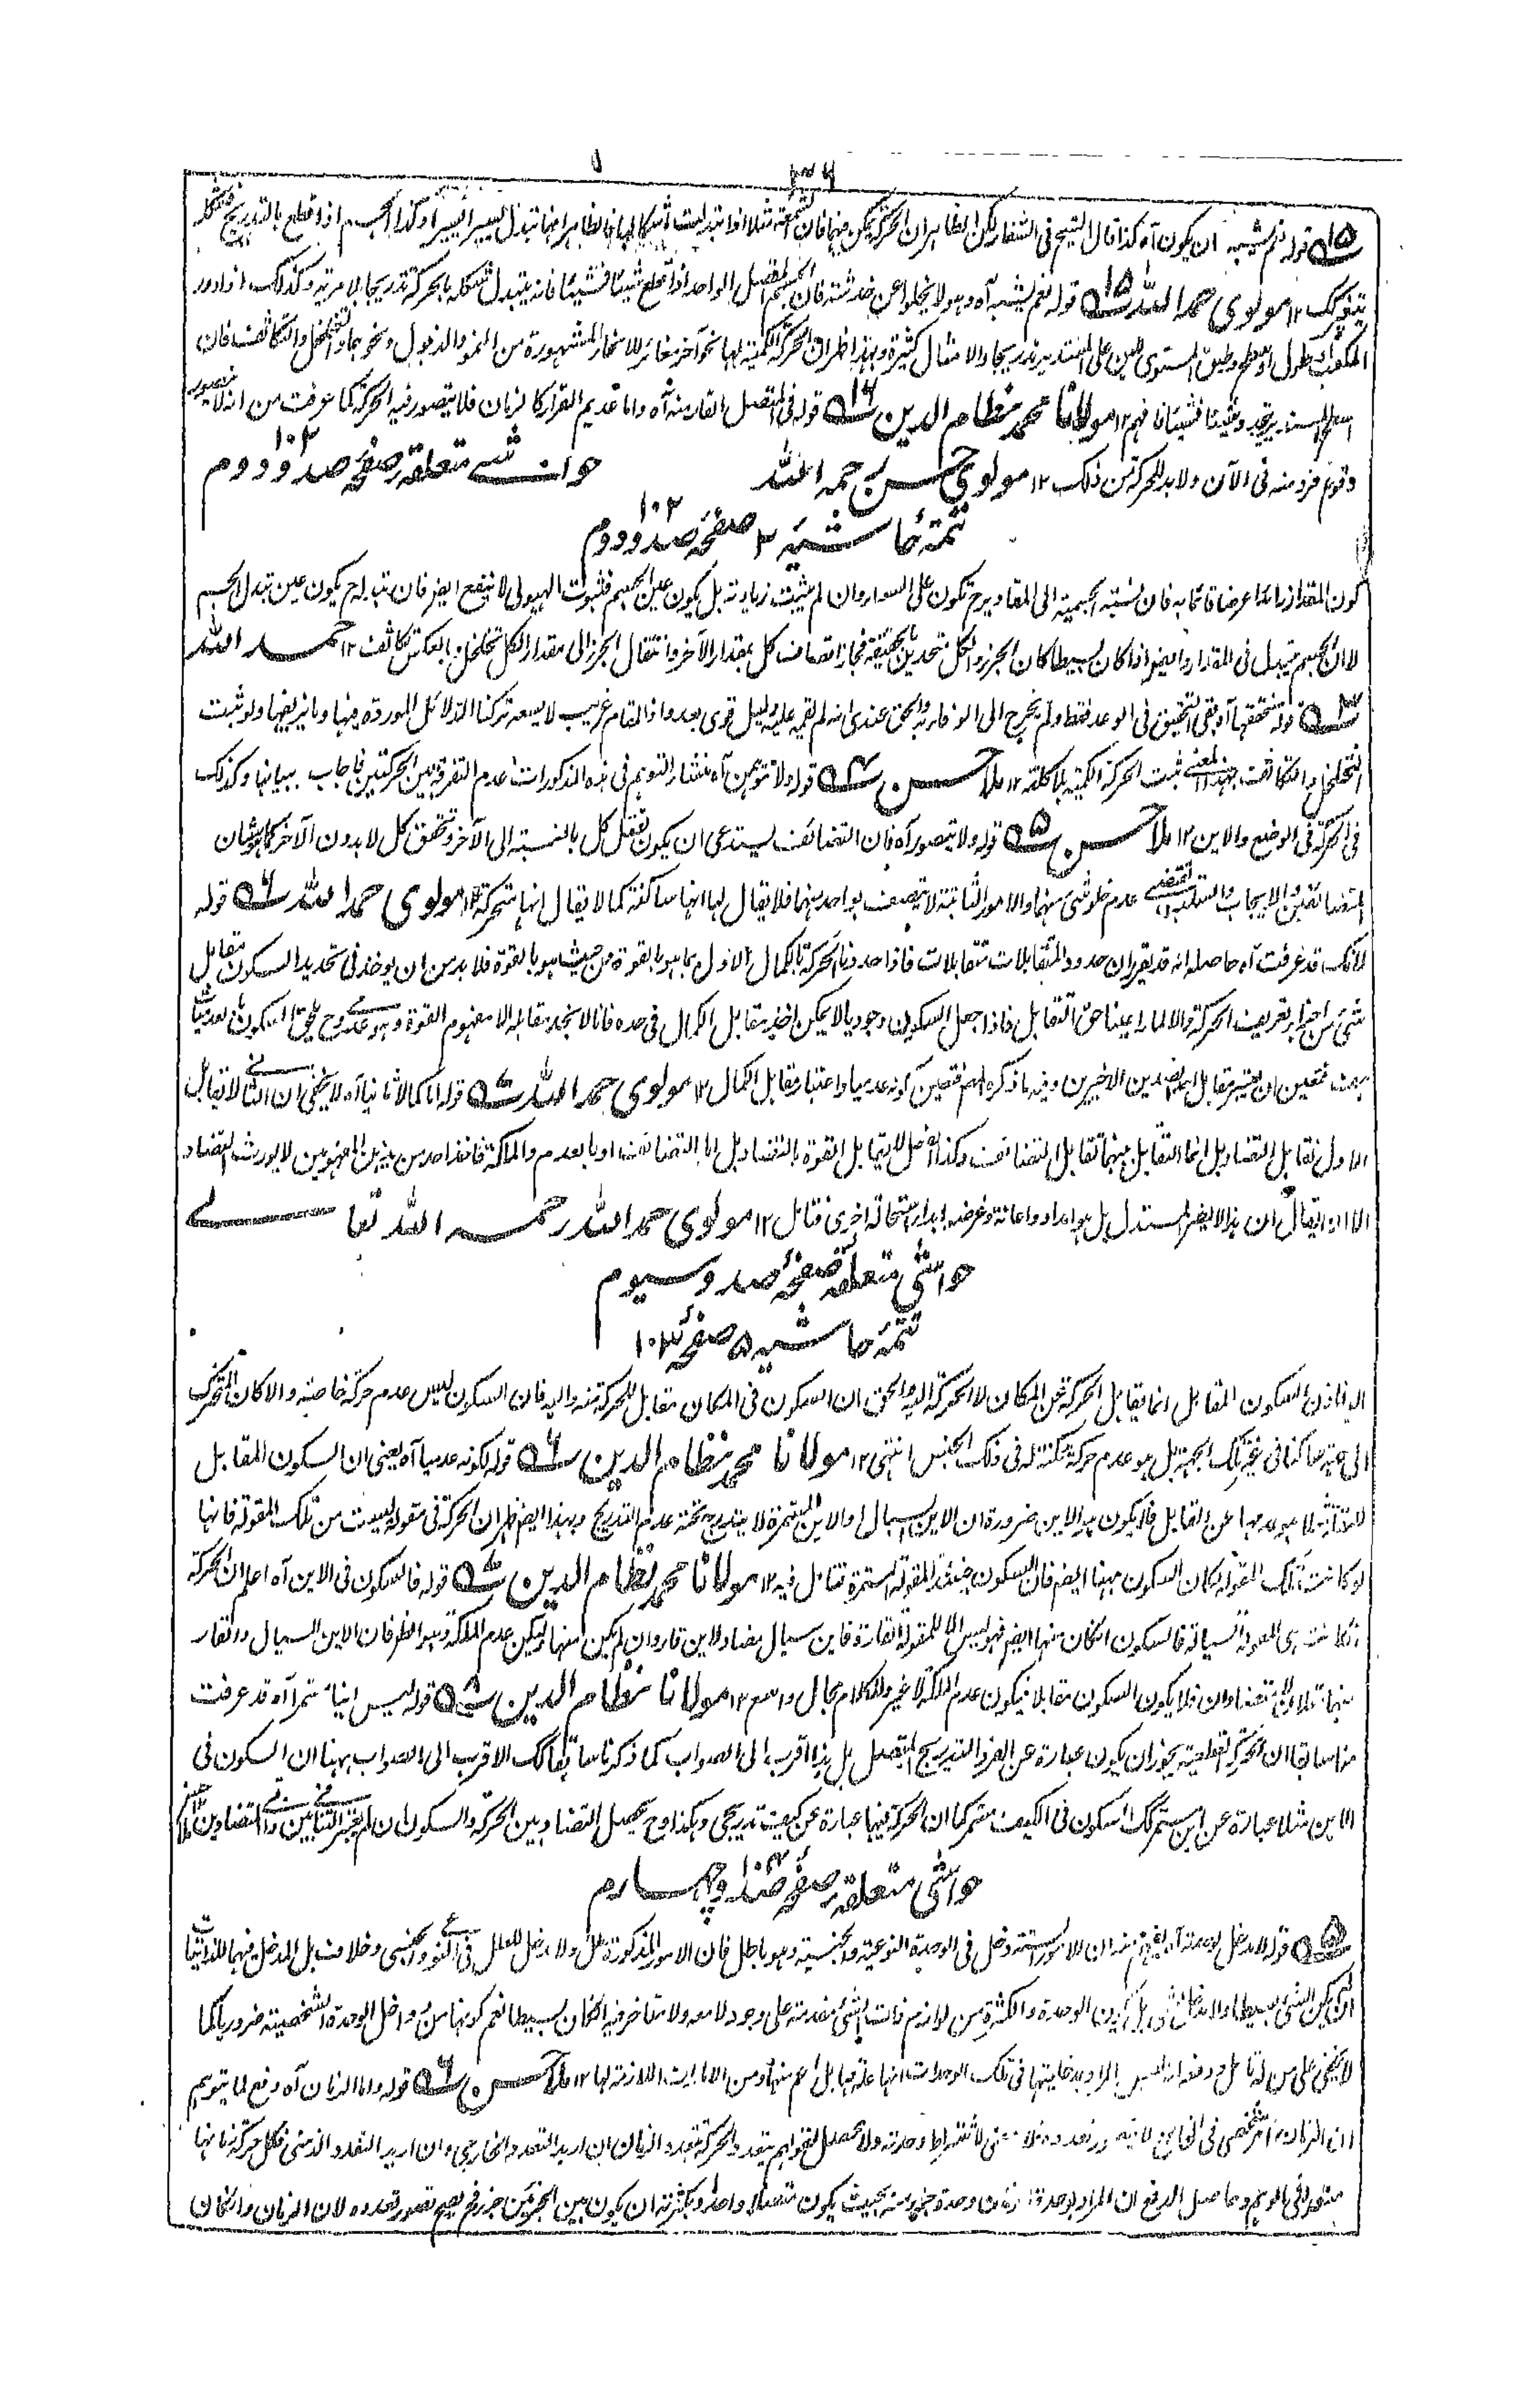 ٣٦
١٥ قوله نعم يشبه ان يكون آه كذا قال الشيخ فى الشفاء لكن الظاهر ان الحركة يمكن فيها فان الشمعة مثلا اذا تبدلت اشكالها فالظاهر انها تتبدل يسيرا يسيرا وكذا الجسم اذا قطع بالتدريج فشكله
يتحرك ١٢ مولوى حمد الله ١٥ قوله نعم يشبه آه وهو لا يخلوا عن خدشة فان الجسم المتصل الواحد اذا قطع شيئا فشيئا فانه يتبدل شكله بالحركة تدريجا لا مرية وكذلك اذا دور
المكعب طول او عظم وطبق المستوى على المستدير تدريجا والامثال كثيرة وبهذا ظهر ان الحركة الكمية لها نحو آخر مغاير للانحاء المشهورة من النمو والذبول ونحوهما والتخلخل والتكاثف فان
السطح المستدير يتجدد شيئا فشيئا فافهم ١٢ مولانا محمد نظام الدين ١٦ قوله فى المتصل القار منه آه واما عديم القرار كالزمان فلا يتصور فيه الحركة كما عرفت من انه لا يتصور
وقوع فرد منه فى الآن ولا بد للحركة من ذلك ١٢ مولوى حسن رحمه الله
حواشى متعلقه صفحه صد و دوم ١٠٢
تتمهٔ حاشيه ٢ صفحه صد و دوم ١٠٢
كون المقدار زائدا عرضا قائما به فان نسبة الجسمية الى المقادير ح تكون على السواء وان لم يثبت زيادته بل يكون عين الجسم فثبوت الهيولى لا ينفع ايضا فان تبدله ح يكون عين تبدل الجسم
لا ان الجسم يتبدل فى المقدار وايضا اذا كان بسيطا كان الجزء والكل متحدين بالحقيقة فجاز اتصاف كل بمقدار الآخر وانتقال الجزء الى مقدار الكل تخلخل وبالعكس تكاثف ١٢ حمد الله
٣ قوله تحققها آه بقى التحقيق فى الوعد فقط ولم يخرج الى الوفاء به والحق عندى انه لم يقم عليه دليل قوى بعد واذ المقام غريب لا يسعه تركنا الدلائل الموردة فيها وما يزيفها ولو ثبت
التخلخل والتكاثف بهذا المعنى ثبت الحركة الكمية بلا كلفة ١٢ ملا حسن ٤ قوله ولا تتوهمن آه منشأ التوهم فى هذه المذكورات عدم التفرقة بين الحركتين فاجاب ببيانها وكذلك
فى الحركة فى الوضع والاين ١٢ ملا حسن ٥ قوله ولا يتصور آه فان التضائف يستدعى ان يكون تعقل كل بالنسبة الى الآخر وتحقق كل لا بدون الآخر كما هو شان
المتضائفين والايجاب والسلب يقتضى عدم خلو شئ منهما والامور الثابتة لا يتصف بواحد منهما فلا يقال لها انها ساكنة كما لا يقال انها متحركة ١٢ مولوى حمد الله ٦ قوله
لانك قد عرفت آه حاصله انه قد تقرر ان حدود المتقابلات متقابلات فاذا حددنا الحركة بالكمال الاول لما هو بالقوة من حيث هو بالقوة فلا بد من ان يوخذ فى تحديد السكون مقابل
شئ من اجزاء تعريف الحركة والا لما راعينا حق التقابل فاذا جعل السكون وجوديا لا يمكن اخذ مقابل الكمال فى حده فانا لا نجد مقابله الا مفهوم القوة وهو عدمى وح يلحق السكون
بهف فتعين ان يعتبر مقابل احد القيدين الاخيرين وفيه ما ذكره المصنف فتعين كونه عدميا واعتبار مقابل الكمال ١٢ مولوى حمد الله ٧ قوله اما كمالا ثانيا آه لا يخفى ان الثانى لا يقابل
الاول تقابل التضاد بل انما التقابل بينهما تقابل التضائف وكذا الفعل لا يقابل القوة بالتضاد بل اما بالتضائف او بالعدم والملكة فاخذ احد من هذين المفهومين لا يورث التضاد
الا ان يقال ان هذا لا يضر المستدل بل هو امداد واعانة وغرضه ابداء استحالة اخرى فتامل ١٢ مولوى حمد الله رحمه الله تعالى
حواشى متعلقه صفحه صد و سيوم
تتمهٔ حاشيه ٥ صفحه ١٠٣
اليه فاذن السكون المقابل انما يقابل الحركة عن المكان لا الحركة اليه والحق ان السكون فى المكان مقابل للحركة منه واليه فان السكون ليس عدم حركة خاصة والا كان المتحرك
الى جهة ساكنا فى غير تلك الجهة بل هو عدم حركة ممكنة له فى ذلك الجنس انتهى ١٢ مولانا محمد نظام الدين ٦ قوله لكونه عدميا آه يعنى ان السكون المقابل
عن التقابل فلا يكون هو الاين ضرورة ان الاين السيال او الاين المستمرة لا يندرج تحته عدم التدريج وبهذا ايضا ظهر ان الحركة فى مقولة ليست من تلك المقولة فانها
لو كانت تلك المقولة لكان السكون ايضا فان السكون حينئذ المقولة المستمرة تقابل فيه ١٢ مولانا محمد نظام الدين ٧ قوله فالسكون فى الاين آه اعلم ان الحركة
هى المقولة السيالة فالسكون ان كان منها ايضا فهو ليس الا للمقولة القارة فاين سيال يضاد لاين قار وان لم يكن منها فيكون عدم الملكة وهو الظهر فان الاين السيال والقار
متضادان فلا يكون السكون مقابلا فيكون عدم الملكة لا غير وللكلام مجال واسع ١٢ مولانا نظام الدين ٨ قوله ليس اينا مستمرا آه قد عرفت
منا سابقا ان الحركة القطعية يجوز ان يكون عبارة عن الفرد التدريجى المتصل بل هذا اقرب الى الصواب كما ذكرنا سابقا كذلك الاقرب الى الصواب ههنا ان السكون فى
الاين مثلا عبارة عن اين مستمر وكذلك السكون فى الكيف مستمر كما ان الحركة فيها عبارة عن كيف تدريجى وهكذا وح يحصل التضاد بين الحركة والسكون ان لم يعتبر التنافى بين المتضادين
حواشى متعلقه صفحه صد و چهارم ١٠٤
٥ قوله لا مدخل لوحدته آه يفهم منه ان للامور الستة دخل فى الوحدة النوعية والجنسية وهو باطل فان الامور المذكورة علل ولا دخل للعلل فى النوع والجنس وخلافه بل المدخل فيهما للذاتيات
ان لم يكن الشئ بسيطا ولا مدخل بل الوحدة والكثرة من لوازم ذات الشئ مقدمة على وجوده لا معه ولا متاخر فيه ان كان بسيطا نعم كونها من دواخل الوحدة الشخصية ضرورى كما
لا يخفى على من له تامل ودفعه انه ليس المراد بدخليتها فى تلك الوحدات انها علة لها بل اعم منها ومن الامارات اللازمة لها ١٢ ملا حسن ٦ قوله واما الزمان آه دفع لما يتوهم
ان الزمان شخصى فى الخارج لاشتراط وحدته ولا محصل لقولهم بتعدد الحركة بتعدد الزمان ان اريد التعدد الخارجى وان اريد التعدد الذهنى فكل حركة زمانها
متعدد فى الوهم وحاصل الدفع ان المراد بوحدة الزمان وحدة جزء منه بحيث يكون متصلا واحدا وبكثرته ان يكون بين الجزئين جزء فح يصح تصور تعدده لان الزمان وان كان